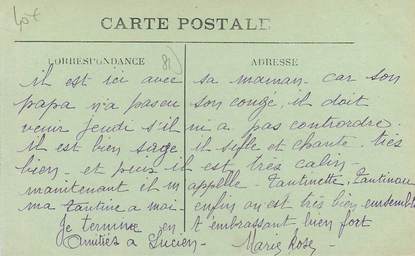 CARTE POSTALE
CORRESPONDANCE
ADRESSE
il est ici avec sa maman car son
papa n'a pas eu son congé. il doit
venir jeudi s'il n'a pas contrordre.
il est bien sage il sifle et chante très
bien. et puis il est très calin.
maintenant il m'appelle Tantinette, Tantinou
ma tantine a moi. enfin on est très bien ensemble
Je termine en t'embrassant bien fort
Amitiés a Lucien. Marie Rose